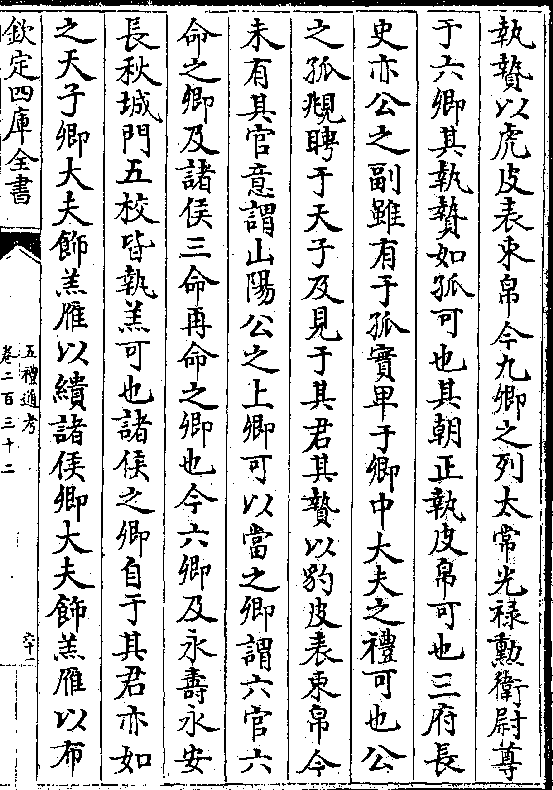 執贄以虎皮表束帛今九卿之列太常光祿勲衛尉尊
于六卿其執贄如孤可也其朝正執皮帛可也三府長
史亦公之副雖有于孤實卑于卿中大夫之禮可也公
之孤覜聘于天子及見于其君其贄以豹皮表束帛今
未有其官意謂山陽公之上卿可以當之卿謂六官六
命之卿及諸侯三命再命之卿也今六卿及永壽永安
長秋城門五校皆執羔可也諸侯之卿自于其君亦如
之天子卿大夫飾羔雁以繢諸侯卿大夫飾羔雁以布
欽定四庫全書
五禮通考
卷二百三十二